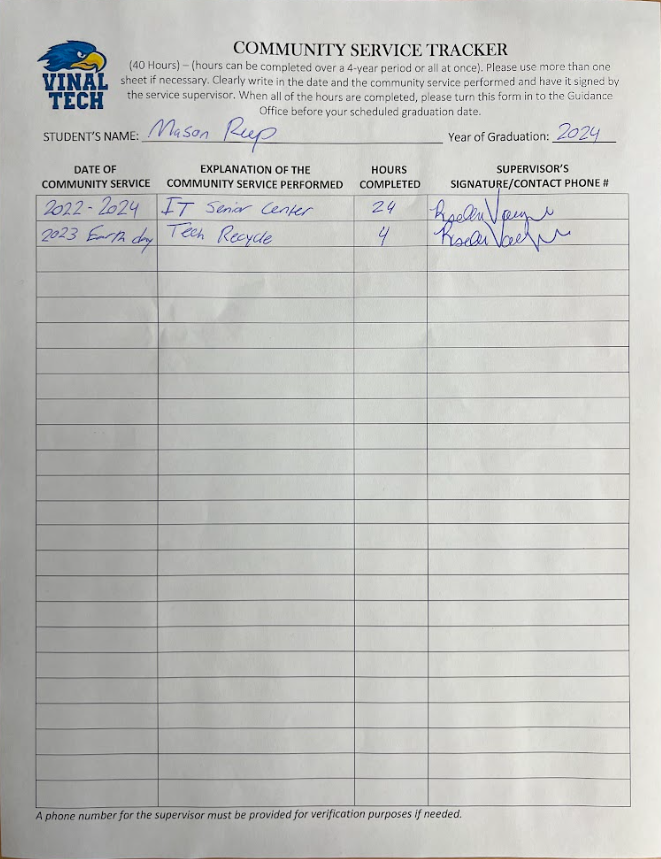 VINAL
TECH
COMMUNITY SERVICE TRACKER
(40 Hours) – (hours can be completed over a 4-year period or all at once). Please use more than one
sheet if necessary. Clearly write in the date and the community service performed and have it signed by
the service supervisor. When all of the hours are completed, please turn this form in to the Guidance
Office before your scheduled graduation date.
STUDENT'S NAME: Mason Year of Graduation: 2024
DATE OF COMMUNITY SERVICE EXPLANATION OF THE COMMUNITY SERVICE PERFORMED HOURS COMPLETED SUPERVISOR'S SIGNATURE/CONTACT PHONE #
2022-2024 IT Senior Center 24
2023 Earth day Tech Recycle 4
A phone number for the supervisor must be provided for verification purposes if needed.